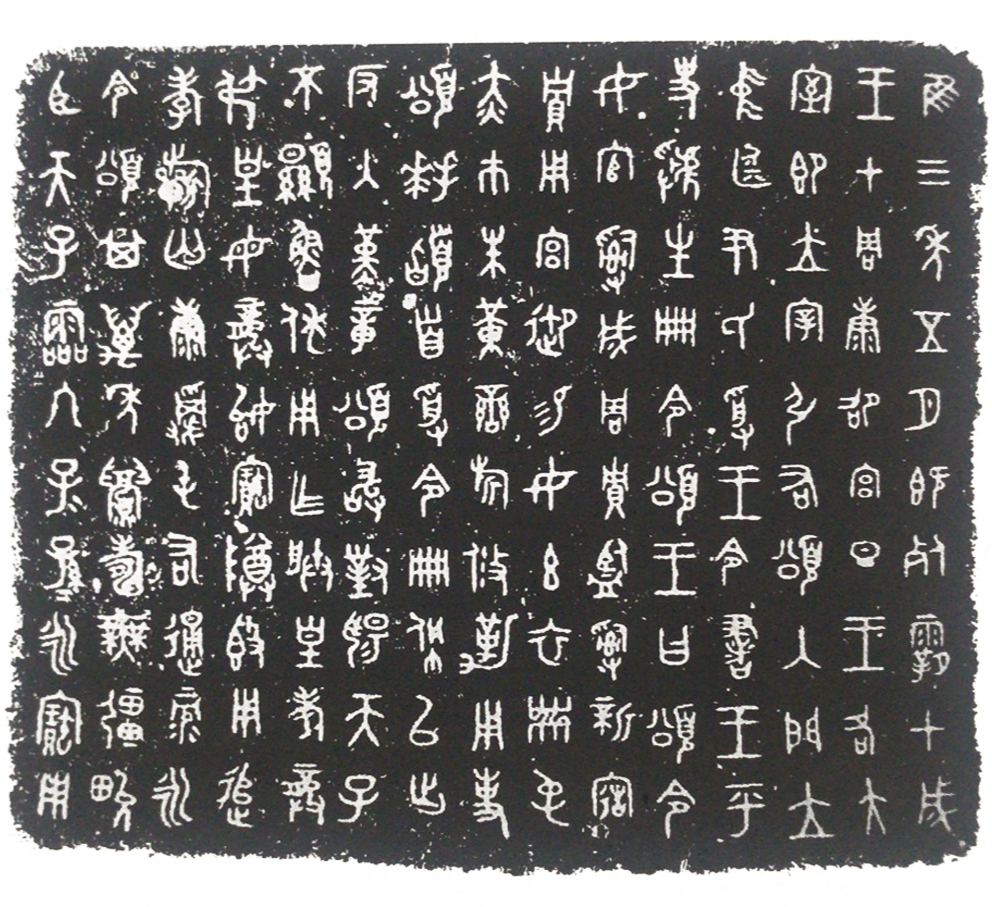 隹三年五月既死霸甲戌
王才周康卲宮旦王各大
室即立宰弘右頌入門立
中廷尹氏受王令書王乎
史虢生冊令頌王曰頌令
女官𤔲成周貯監𤔲新造
貯用宮御易女玄衣黹屯
赤巿朱黃䜌旂攸勒用事
頌拜𩒨首受令冊佩以出
反入堇章頌敢對揚天子
不顯魯休用乍朕皇考龏
弔皇母龏始寶尊鼎用追
孝祈匄康𠱠屯右通彔永
令頌其萬年眉壽無疆畯
臣天子霝冬子孫永寶用